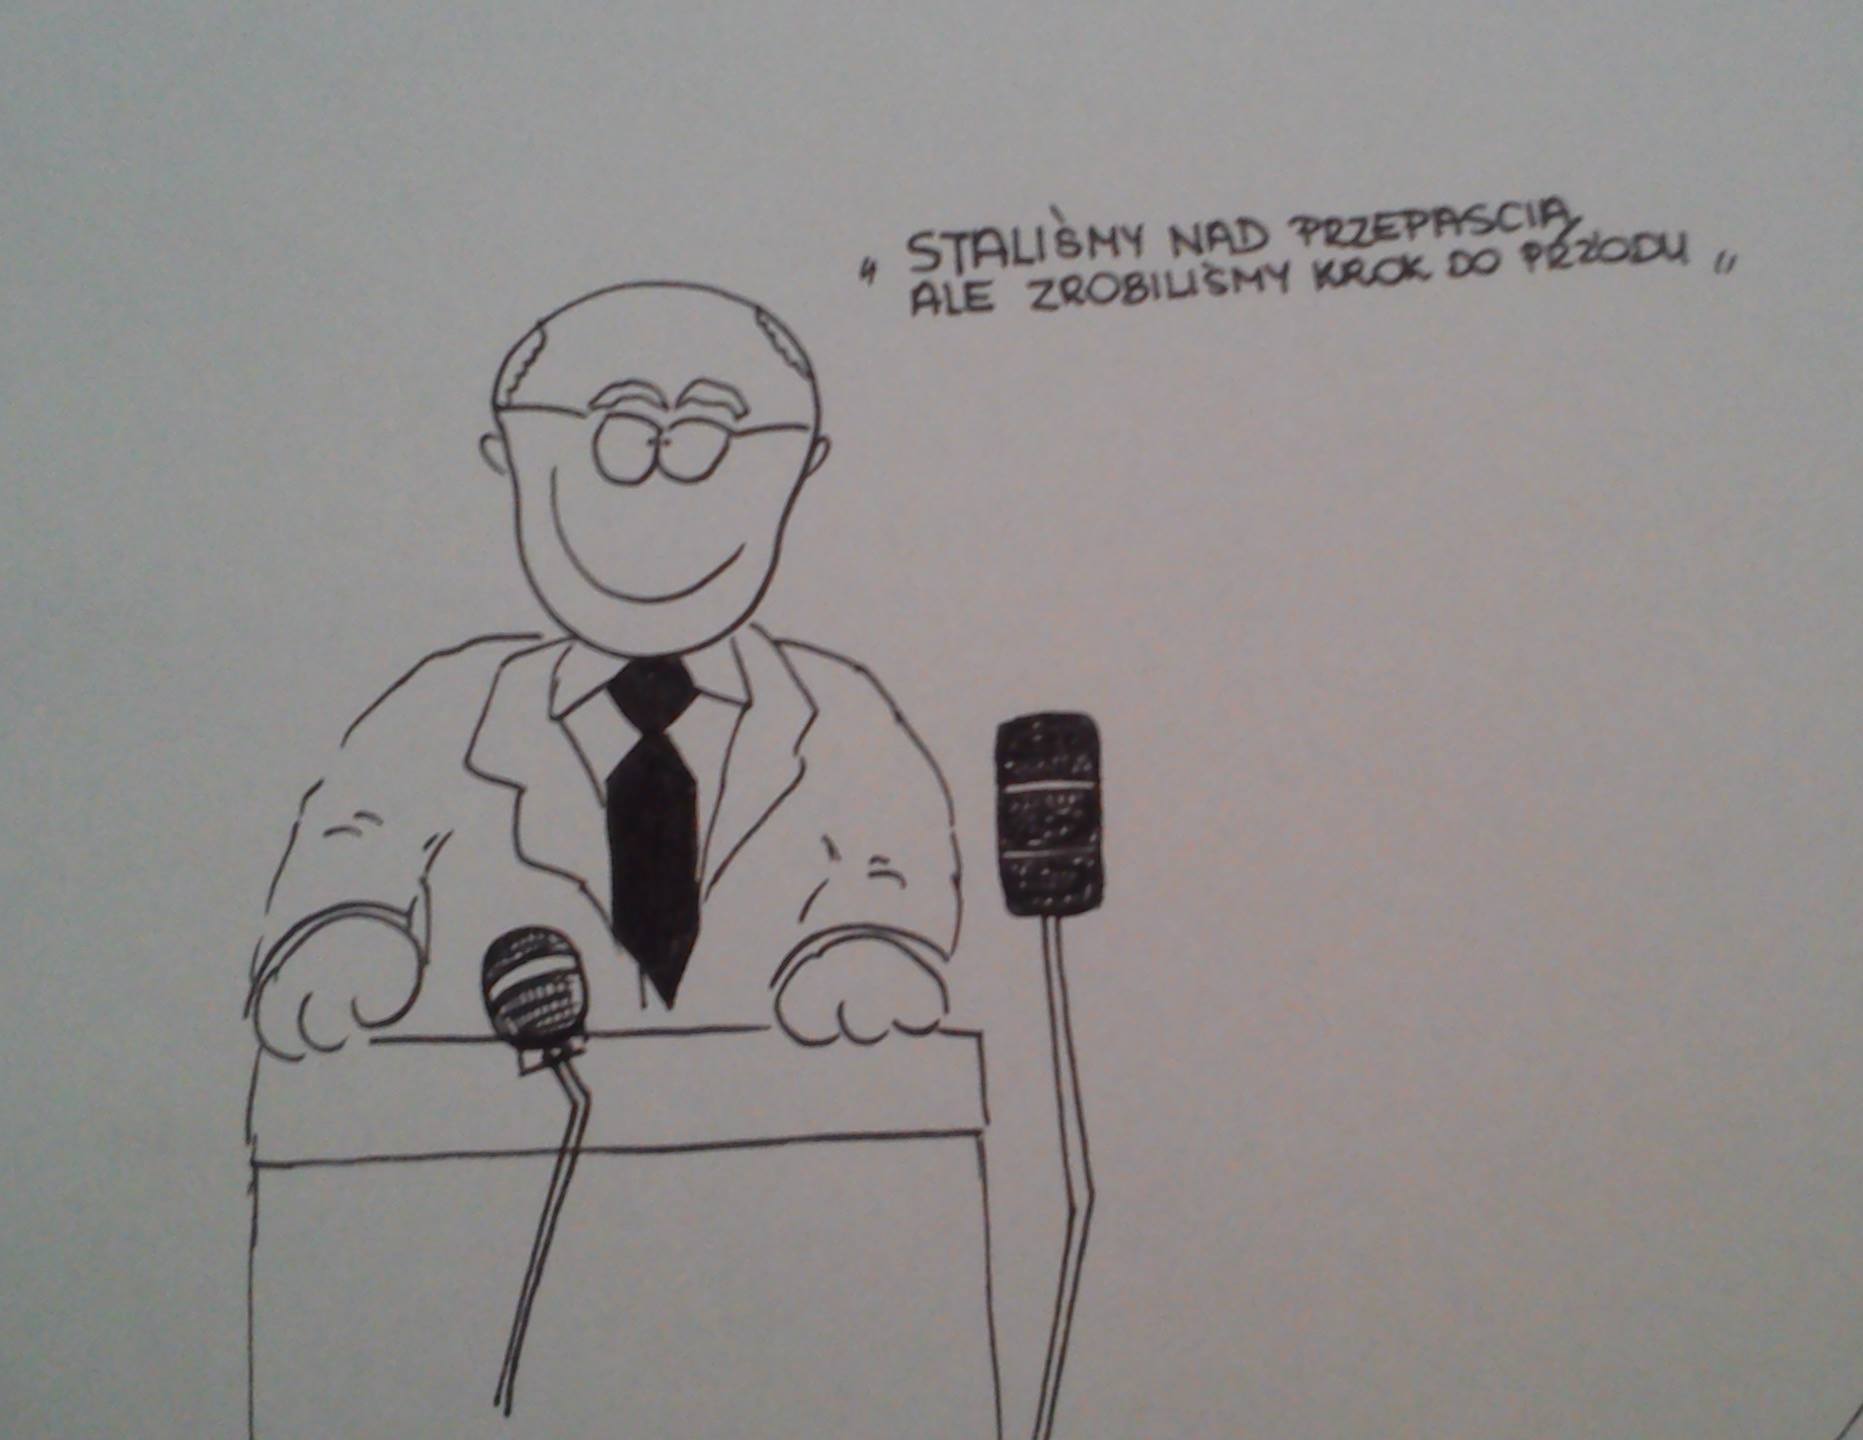 " STALIŚMY NAD PRZEPASCIĄ
ALE ZROBILIŚMY KROK DO PRZODU "